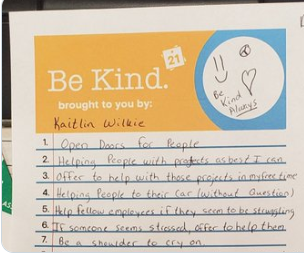 21
Be Kind.
brought to you by:
Kaitlin Wilkie
Be
Kind
Always
1. Open Doors for People
2. Helping People with projects as best I can
3. Offer to help with those projects in my free time
4. Helping People to their Car (without Question)
5. Help fellow employees if they seem to be struggling
6. If someone seems stressed, offer to help them
7. Be a shoulder to cry on.